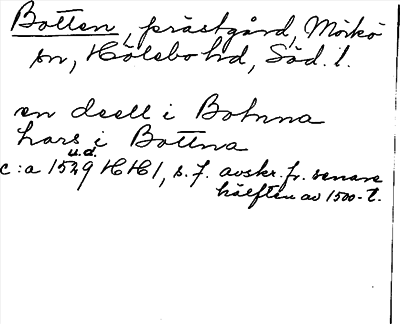 Botten, prästgård, Mörkö
sn, Hölebo hd, Söd. l.
en deell i Botnna
hars i Bottna
u.d.
c:a 1529 HH 1, s. 7. avskr. fr. senare
hälften av 1500-t.